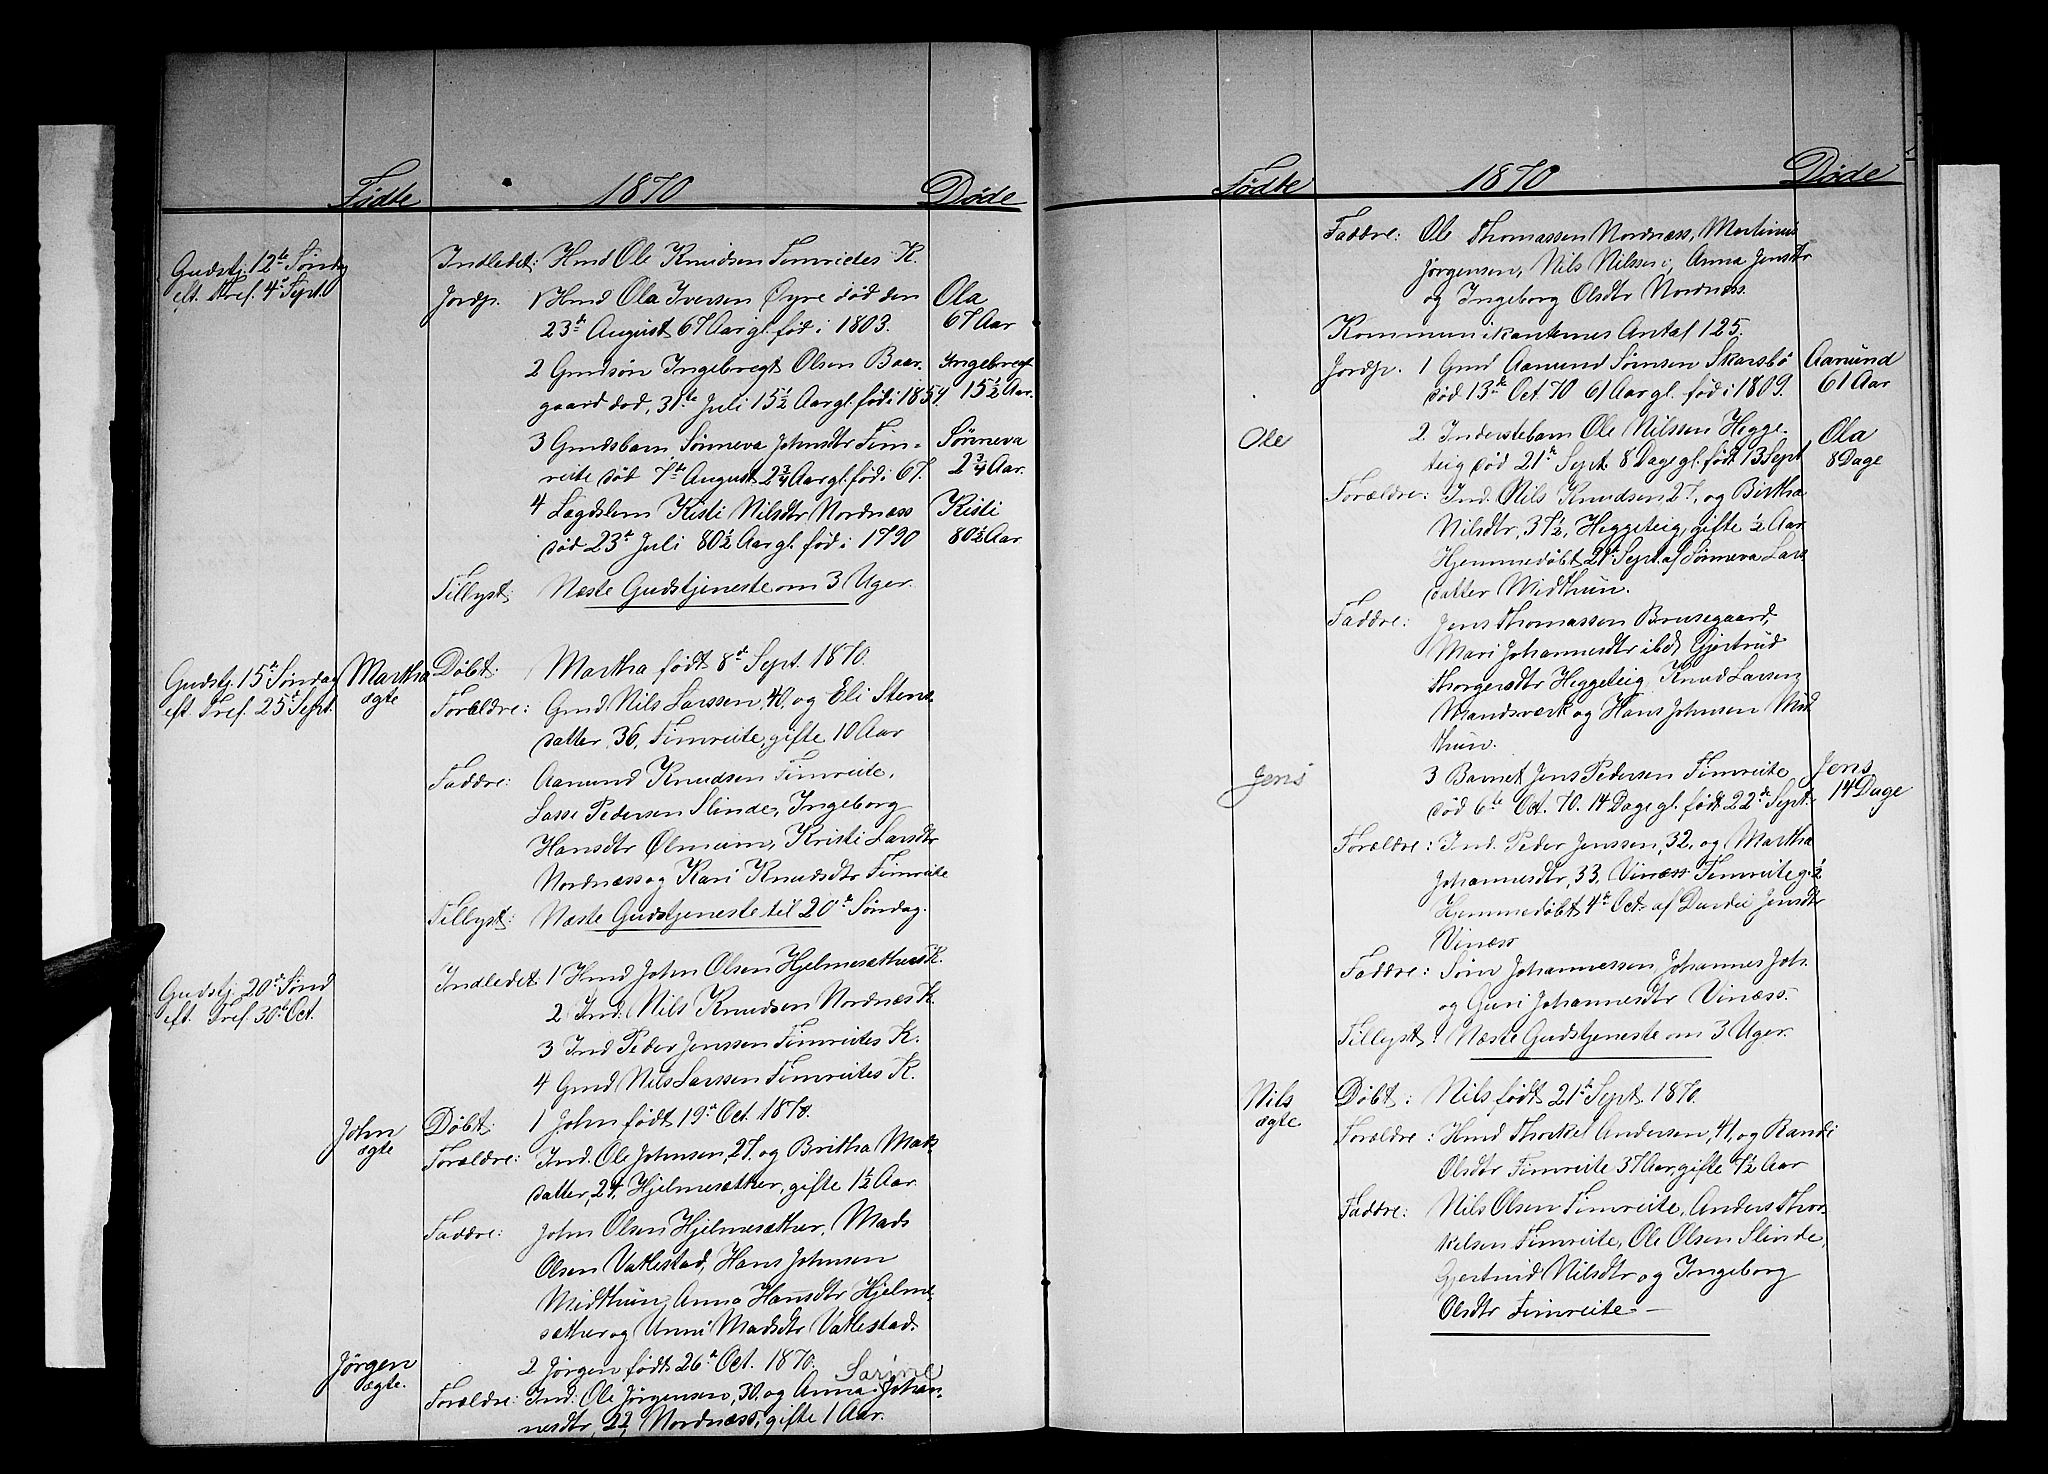 Fødte 1870 Døde
Gudstj. 12te Søndag
eft. Tref. 4de Sept.
Indledet: Hmd Ole Knudsen Timreites K.
Jordp. 1 Hmd Ola Iversen Øyre død den
23de August 67 Aar gl. fød i 1803.
Ola
67 Aar
2 Gmdsøn Ingebregt Olsen Baar-
gaard død, 31te Juli 15½ Aar gl. fød i 1854.
Ingebregt
15½ Aar.
3 Gmdsbarn Sønneva Johnsdtr Tim-
reite død 7de August 2¾ Aar gl. fød i 67.
Sønneva
2¾ Aar.
4 Lægdslem Kisti Nilsdtr Nordnæss
død 23de Juli 80½ Aar gl. fød i 1790
Kisti
80½ Aar
Tillyst: Næste Gudstjeneste om 3 Uger.
Gudstj. 15de Søndag
eft. Tref. 25de Sept.
Martha
ægte
Døbt: Martha født 8de Sept. 1870.
Forældre: Gmd Nils Larssen, 40, og Eli Stens-
datter, 36, Timreite, gifte 10 Aar
Faddre: Aamund Knudsen Timreite,
Lasse Pedersen Slinde, Ingeborg
Hansdtr Ølmeim, Kristi Larsdtr
Nordnæss og Kari Knudsdtr Timreite
Tillyst: Næste Gudstjeneste til 20de Søndag.
Gudstj. 20de Sønd
eft. Tref. 30te Oct.
Indledet 1 Hmd John Olsen Hjelmesæthers K.
2 Ind. Nils Knudsen Nordnæs K.
3 Ind Peder Jenssen Timreites K.
4 Gmd Nils Larssen Timreites K.
John
ægte
Døbt: 1 John født 19de Oct. 1870.
Forældre: Ind. Ole Johnsen, 27, og Britha Mads-
datter, 24, Hjelmesæther, gifte 1½ Aar.
Faddre: John Olsen Hjelmesæther, Mads
Olsen Vatlestad, Hans Johnsen
Midthun, Anna Hansdtr Hjelme-
sæther og Unni Madsdtr Vatlestad.
Jørgen
ægte.
2 Jørgen født 26de Oct. 1870.
Forældre: Ind. Ole Jørgensen, 30, og Anna Johan-
nesdtr, 22, Nordnæss, gifte 1 Aar.
Fødte 1870 Døde
Faddre: Ole Thomassen Nordnæss, Martinus
Jørgensen, Nils Nilssen, Anna Jensdtr
og Ingeborg Olsdtr Nordnæss.
Kommunikanternes Antal 125.
Jordp. 1 Gmd Aamund Simsen Skarsbø
død 13de Oct. 70 61 Aar gl. fød i 1809.
Aamund
61 Aar
Ole
2 Inderstebarn Ole Nilssen Hegge-
teig død 21de Sept. 8 Dage gl. født 13 Sept
Ola
8 Dage
Forældre: Ind. Nils Knudsen 27, og Birtha
Nilsdtr, 37½, Heggeteig, gifte ½ Aar
Hjemmedøbt 21de Sept. af Sønneva Lars
datter Midthun.
Faddre: Jens Thomassen Brusegaard,
Mari Johannesdtr ibd. Gjertrud
Thorgersdtr Heggeteig Knud Larsen
Mandsværk og Hans Johnsen Mid
thun.
Jens
3 Barnet Jens Pedersen Timreite
død 6te Oct. 70. 14 Dage gl. født 22de Sept.
Jens
14 Dage
Forældre: Ind. Peder Jenssen, 32, og Martha
Johannesdtr, 33, Vinæss Timreite g. ½
Hjemmedøbt 4de Oct. af Durdei Jensdtr
Vinæss
Faddre: Simr Johannessen, Johannes Joh.
og Guri Johannesdtr Vinæss.
Tillyst: Næste Gudstjeneste om 3 Uger.
Nils
ægte
Døbt: Nils født 21de Sept. 1870.
Forældre: Hmd Thorkel Andersen, 41, og Randi
Olsdtr Timreite 37 Aar, gifte 7½ Aar
Faddre: Nils Olsen Timreite, Anders Thor-
kelsen Timreite, Ole Olsen Slinde,
Gjertrud Nilsdtr og Ingeborg
Olsdtr Timreite.